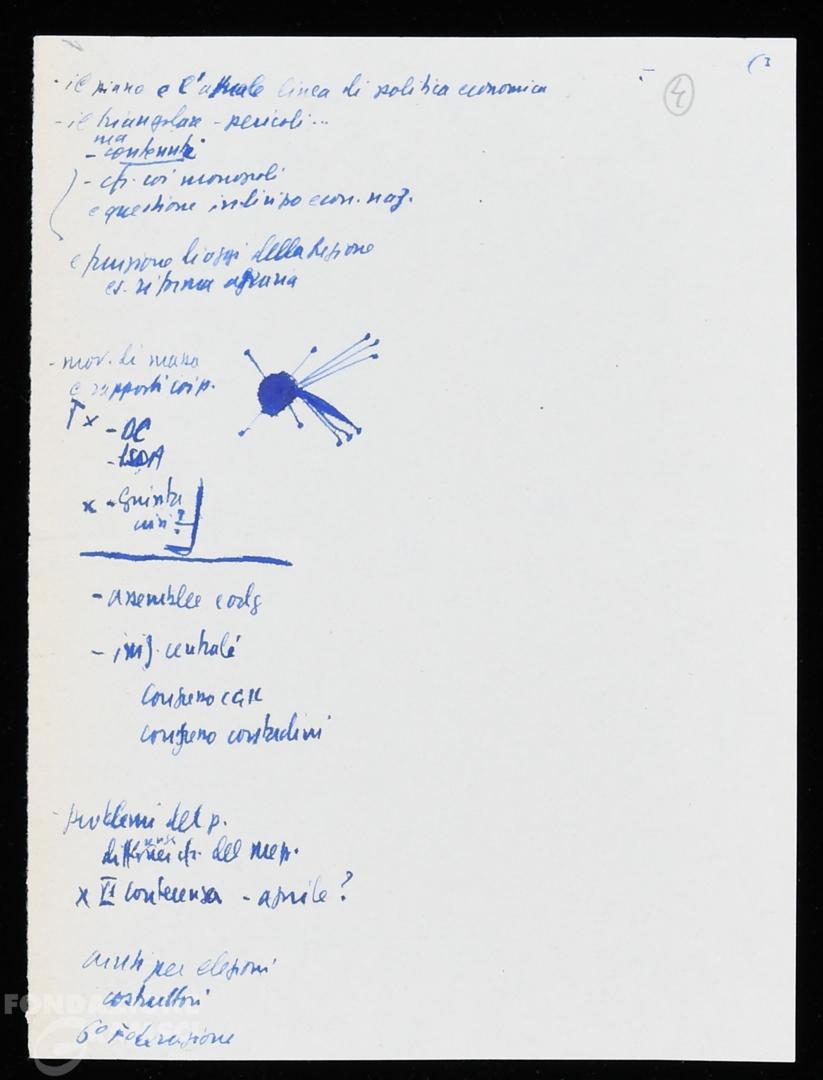 - il piano e l'attuale linea di politica economica
4
- il triangolare - pericoli...
ma
- contenuti
- cfr. coi monopoli
e questione indirizzo econ. naz.
e funzione di oggi della Regione
es. riforma agraria
- mov. di massa
e rapporti coi p.
x - DC
x - Giunta
?
- assemblee e odg
- iniz. centrale
congresso case
congresso contadini
- problemi del p.
del mezz.
x II conferenza - aprile?
per elezioni
costruttori
6° Federazione
FONDAZIONE